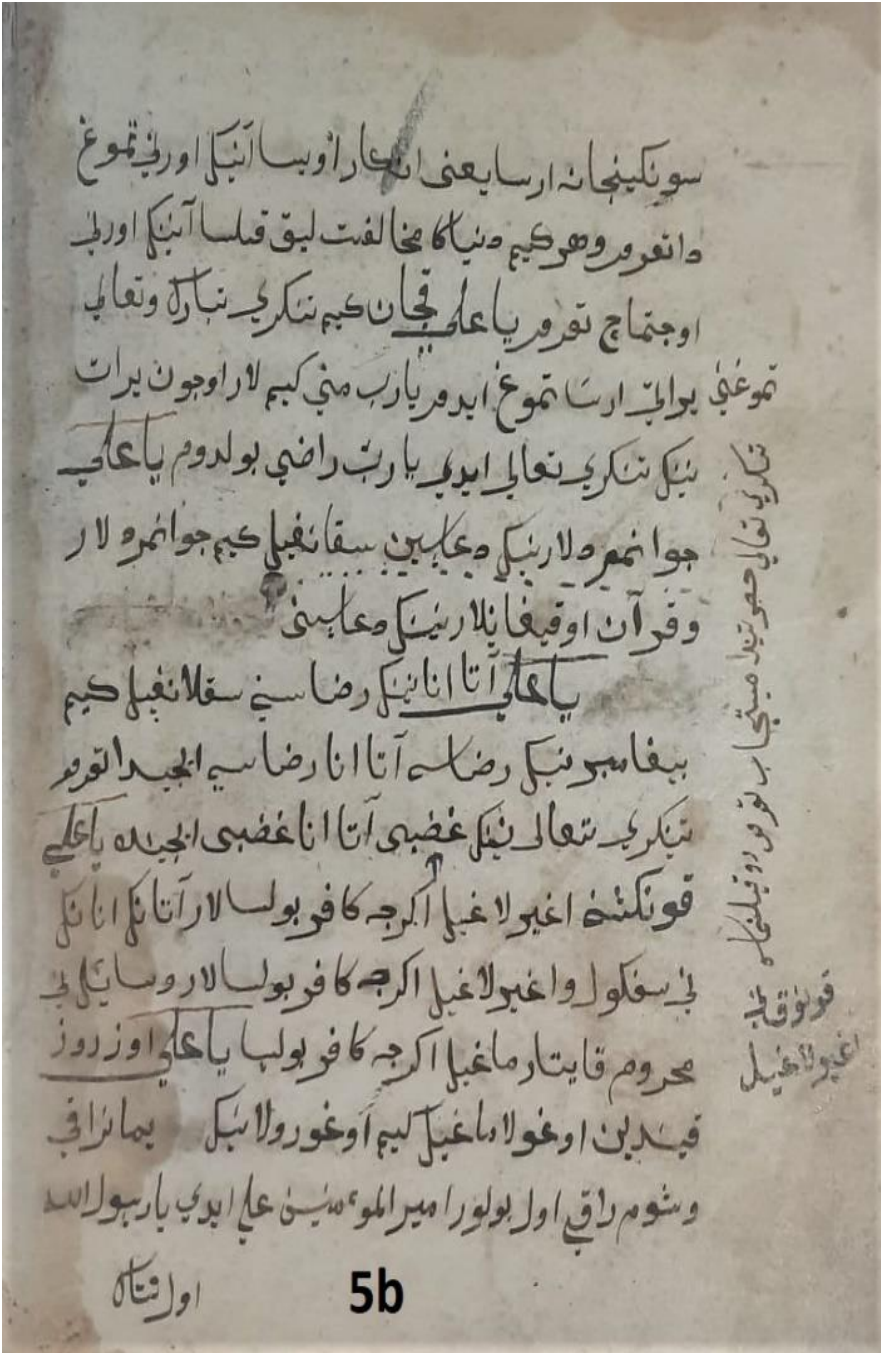 سونكينجانه ارسا يعنى انكار اوبسا آنينك اورنى تموغ
داتقرور وهركيم دنياكا مخالفت ليق قيلسا آنينك اورنى
اوجتماح تقرور ياعلي قچان كيم تنكري تبارك وتعالى
تموغنى يراتى ارسا تموغ ايدور يارب منى كيم لار اوچون يرات
نينك تنكري تعالى ايدي يارب راضي بولدوم ياعلي
جوانمرد لارنينك دعاسين سقانغيل كيم جوانمرد لار
وقرآن اوقيغانلارنينك دعاسينى
ياعلي آتا انانينك رضاسنى سقلانغيل كيم
بيغامبرنينك رضاسى آتا انا رضاسى ايچيدا تقرور
تينكري تعالى نينك غضبى آتا انا غضبى ايچينده ياعلي
قونكشنه اغيرلاغيل اكرچه كافر بولسالار آتانك انانك
نى سفكول واغيرلاغيل اكرچه كافر بولسالار وسايلنى
محروم قايتارماغيل اكرچه كافر بولسا ياعلي اوزروز
قيندين اوغولاماغيل كيم اوغورولانينك يمانراقى
وشومراقى اول بولور اميرالمؤمنين على ايدي يارسول الله
اول قناق
تنكري تعالى حضرتيندا مستجاب تقرور
قونوقنى
اغيرلاغيل
5b